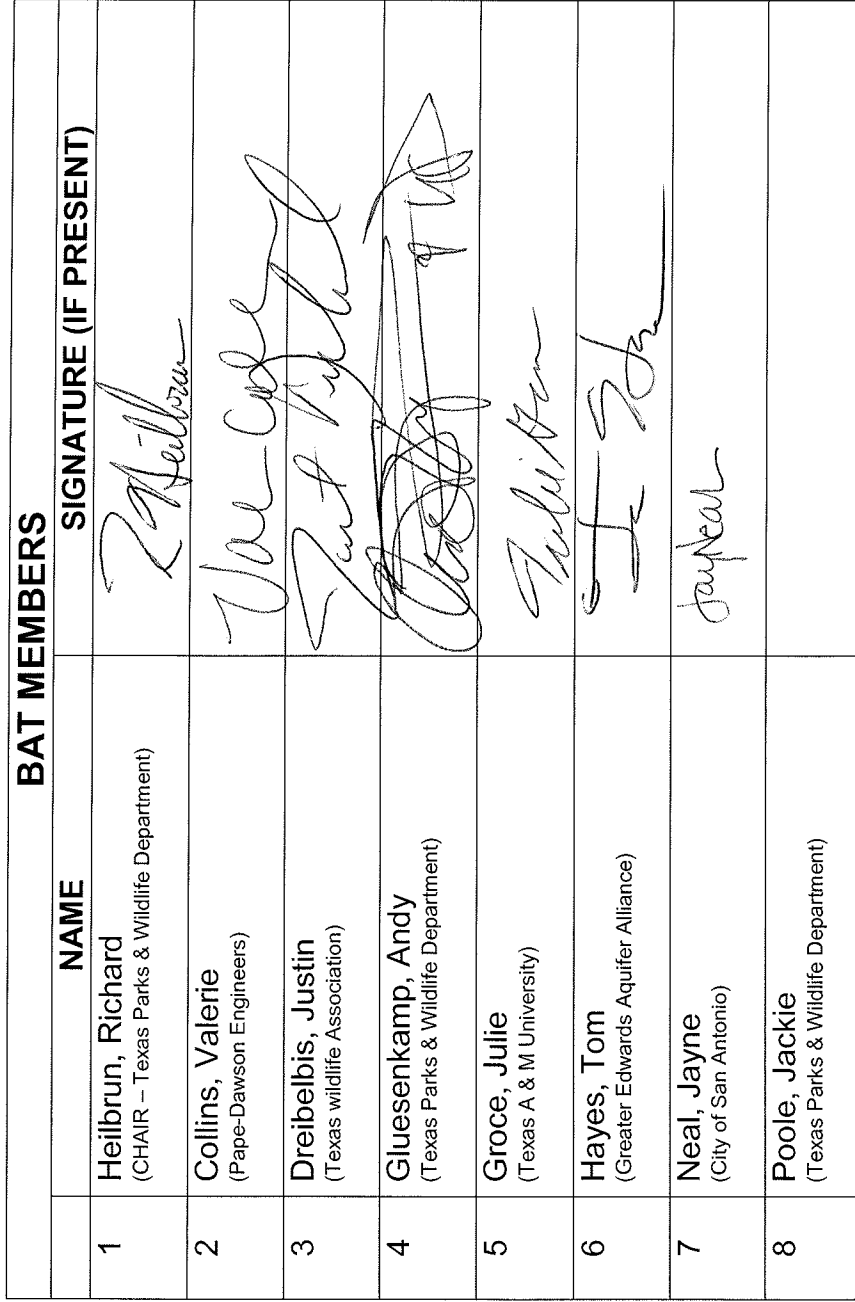 BAT MEMBERS
NAME
SIGNATURE (IF PRESENT)
1
Heilbrun, Richard
(CHAIR – Texas Parks & Wildlife Department)
R Heilbrun
2
Collins, Valerie
(Pape-Dawson Engineers)
3
Dreibelbis, Justin
(Texas wildlife Association)
4
Gluesenkamp, Andy
(Texas Parks & Wildlife Department)
5
Groce, Julie
(Texas A & M University)
Julie
6
Hayes, Tom
(Greater Edwards Aquifer Alliance)
7
Neal, Jayne
(City of San Antonio)
Jay Neal
8
Poole, Jackie
(Texas Parks & Wildlife Department)